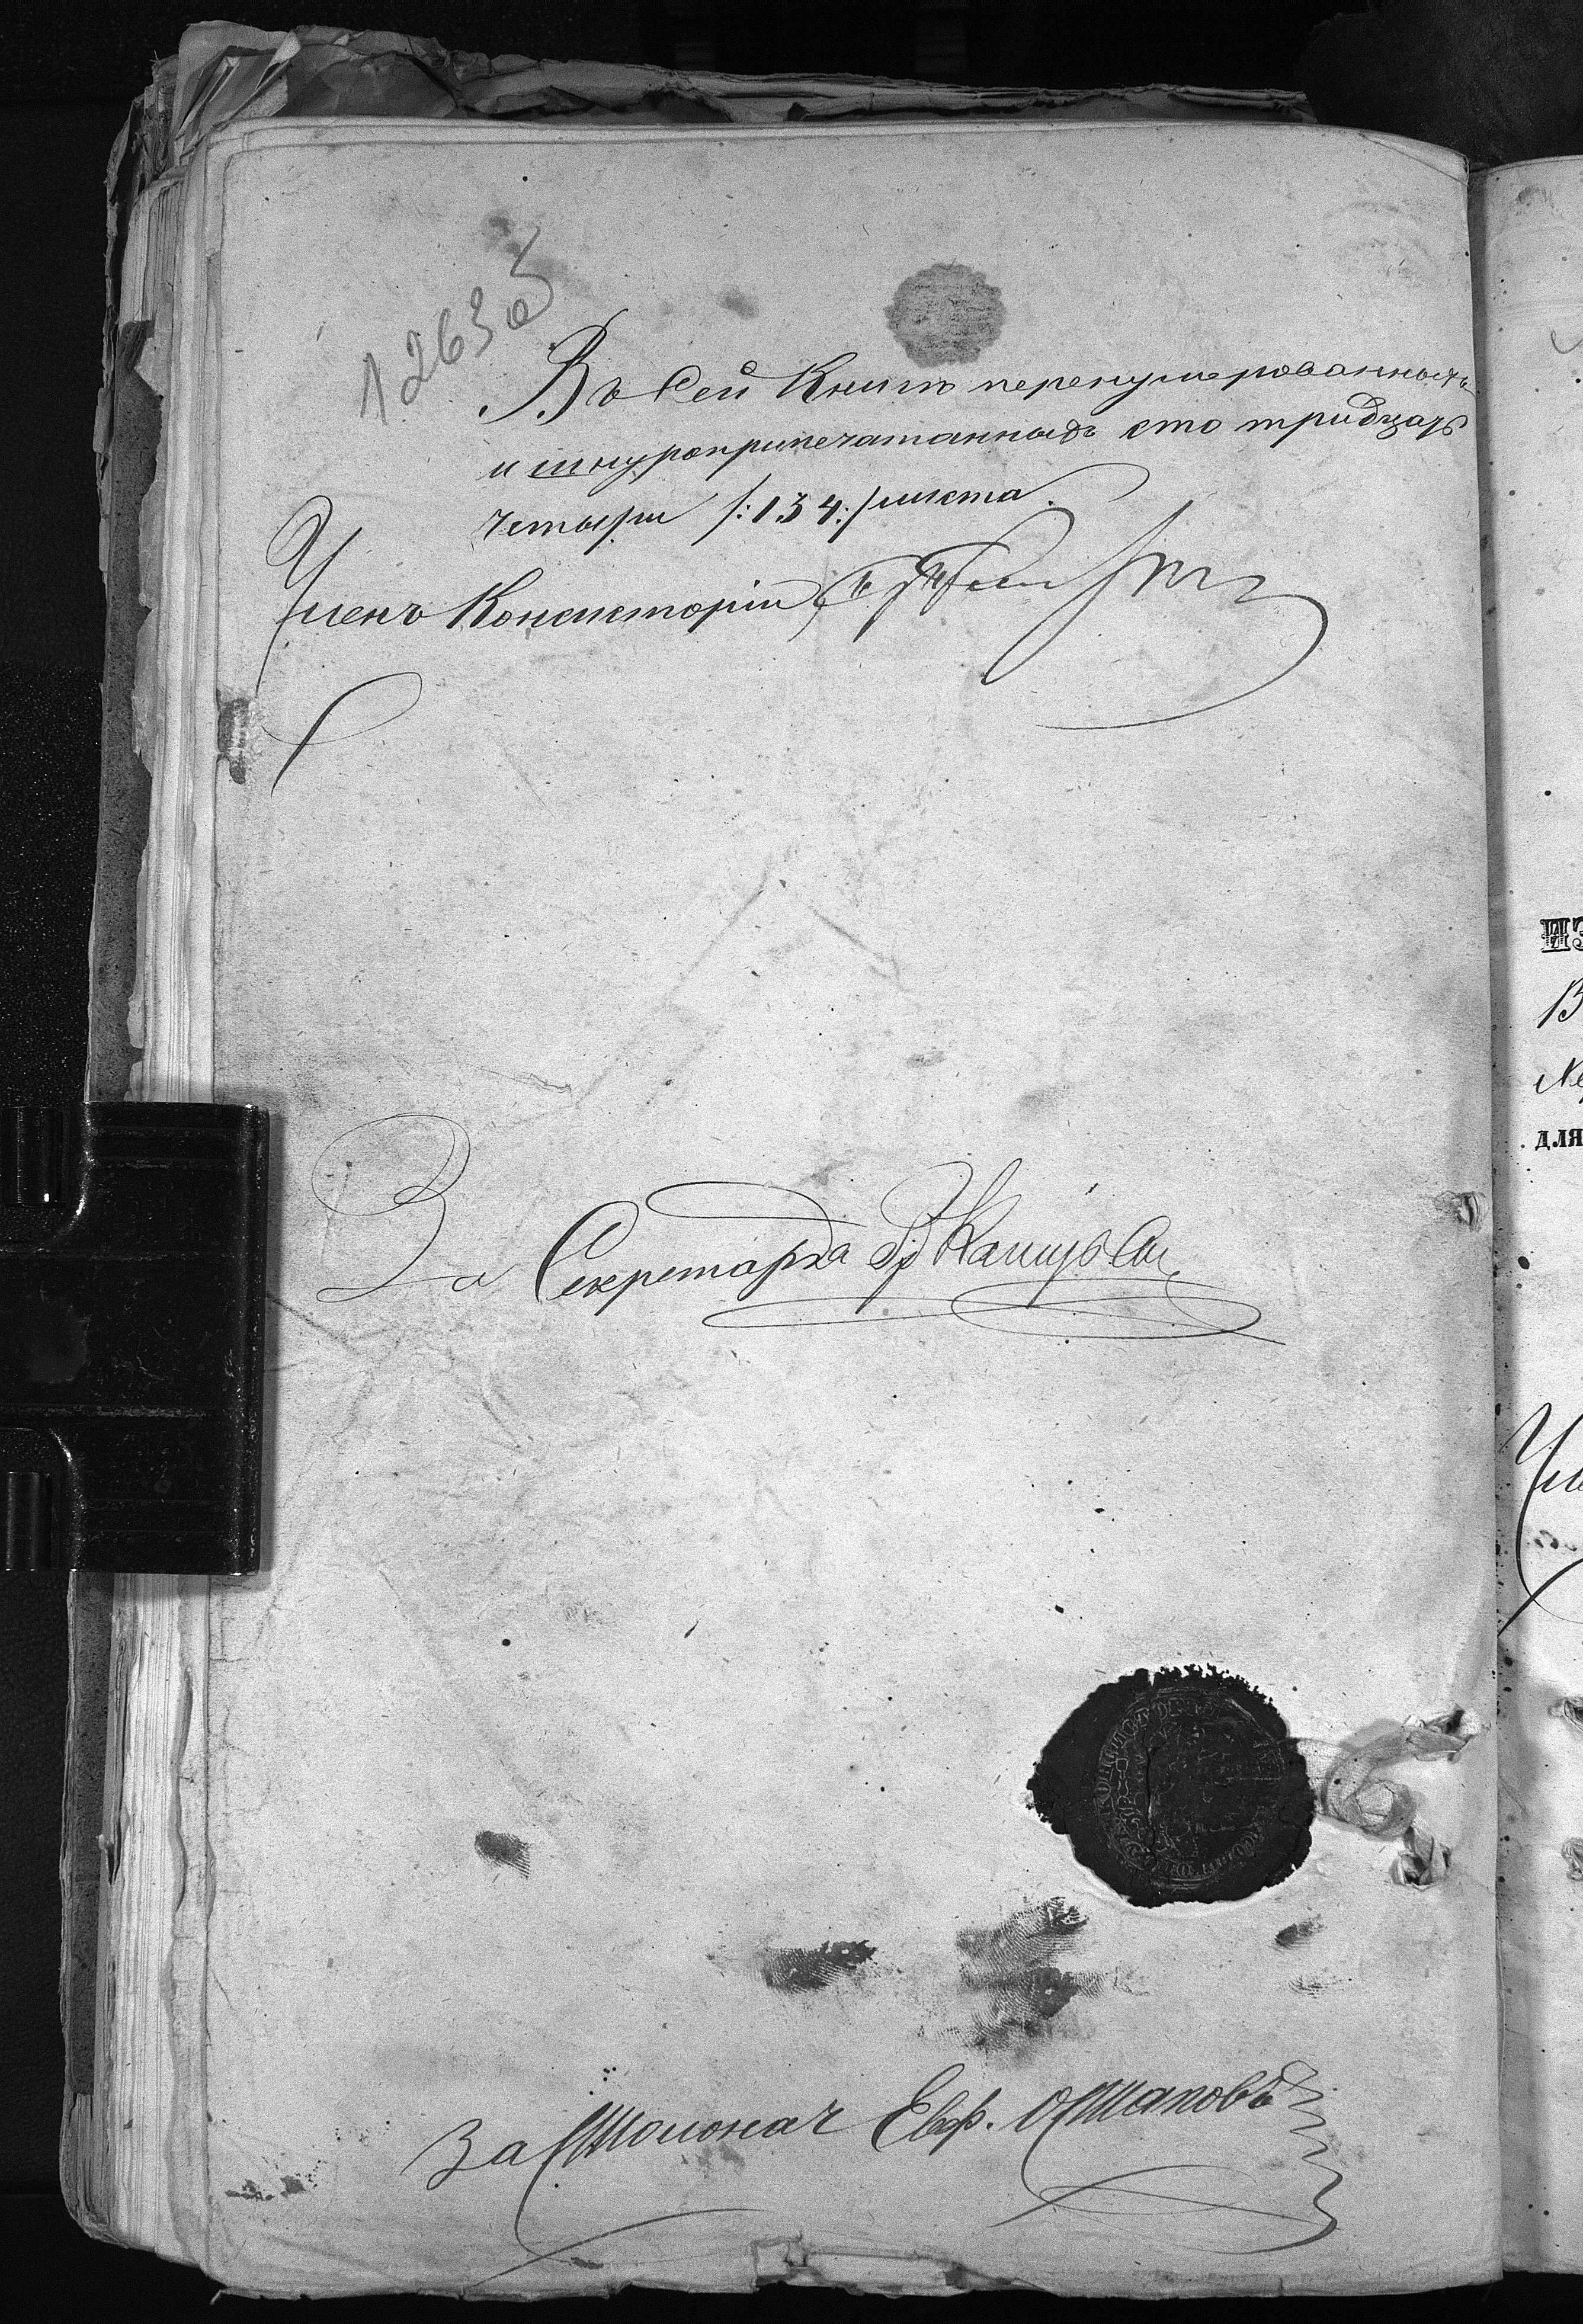 1263 об
Въ сей Книгѣ перенумерованныхъ
и шнуроприпечатанныхъ сто тридцать
четыре /:134:/ листа.
Членъ Консисторіи
За Секретаря
За Столонач Евф. Остаповъ
ИЗ
В
для
Чле